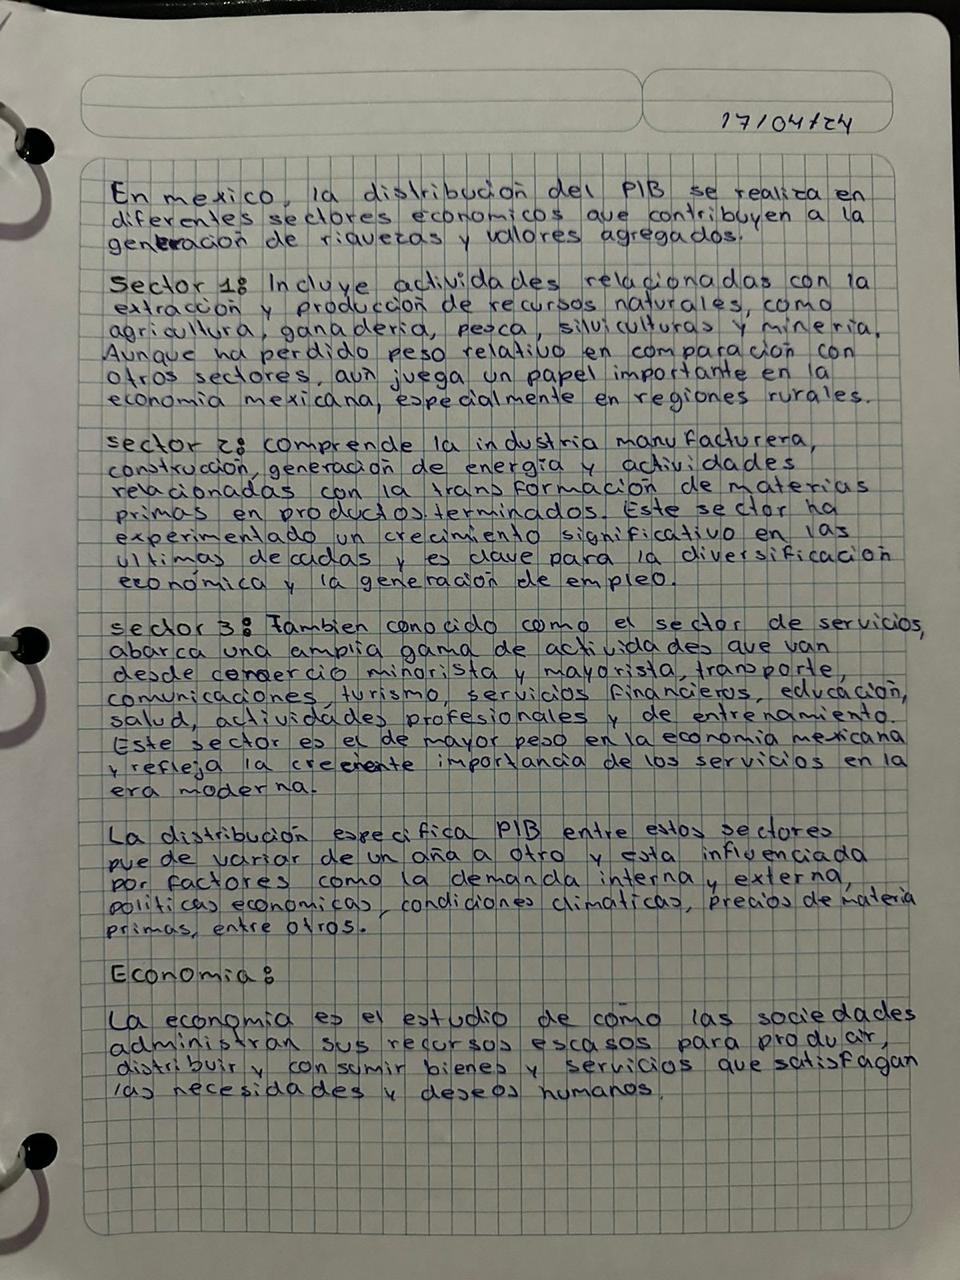 17/04/24
En mexico, la distribución del PIB se realiza en
diferentes sectores economicos que contribuyen a la
generación de riquezas y valores agregados.
Sector 1: Incluye actividades relacionadas con la
extracción y producción de recursos naturales, como
agricultura, ganaderia, pesca, silviculturas y mineria.
Aunque ha perdido peso relativo en comparación con
otros sectores, aún juega un papel importante en la
economia mexicana, especialmente en regiones rurales.
sector 2: comprende la industria manufacturera,
construcción, generación de energía y actividades
relacionadas con la transformación de materias
primas en productos terminados. Este sector ha
experimentado un crecimiento significativo en las
ultimas decadas y es clave para la diversificación
económica y la generación de empleo.
sector 3: Tambien conocido como el sector de servicios,
abarca una amplia gama de actividades que van
desde comercio minorista y mayorista, transporte,
comunicaciones, turismo, servicios financieros, educación,
salud, actividades profesionales y de entrenamiento.
Este sector es el de mayor peso en la economia mexicana
y refleja la creciente importancia de los servicios en la
era moderna.
La distribución especifica PIB entre estos sectores
puede variar de un aña a otro y esta influenciada
por factores como la demanda interna y externa,
politicas economicas, condiciones climaticas, precios de materia
primas, entre otros.
Economia:
La economia es el estudio de cómo las sociedades
administran sus recursos escasos para producir,
distribuir y consumir bienes y servicios que satisfagan
las necesidades y deseos humanos.